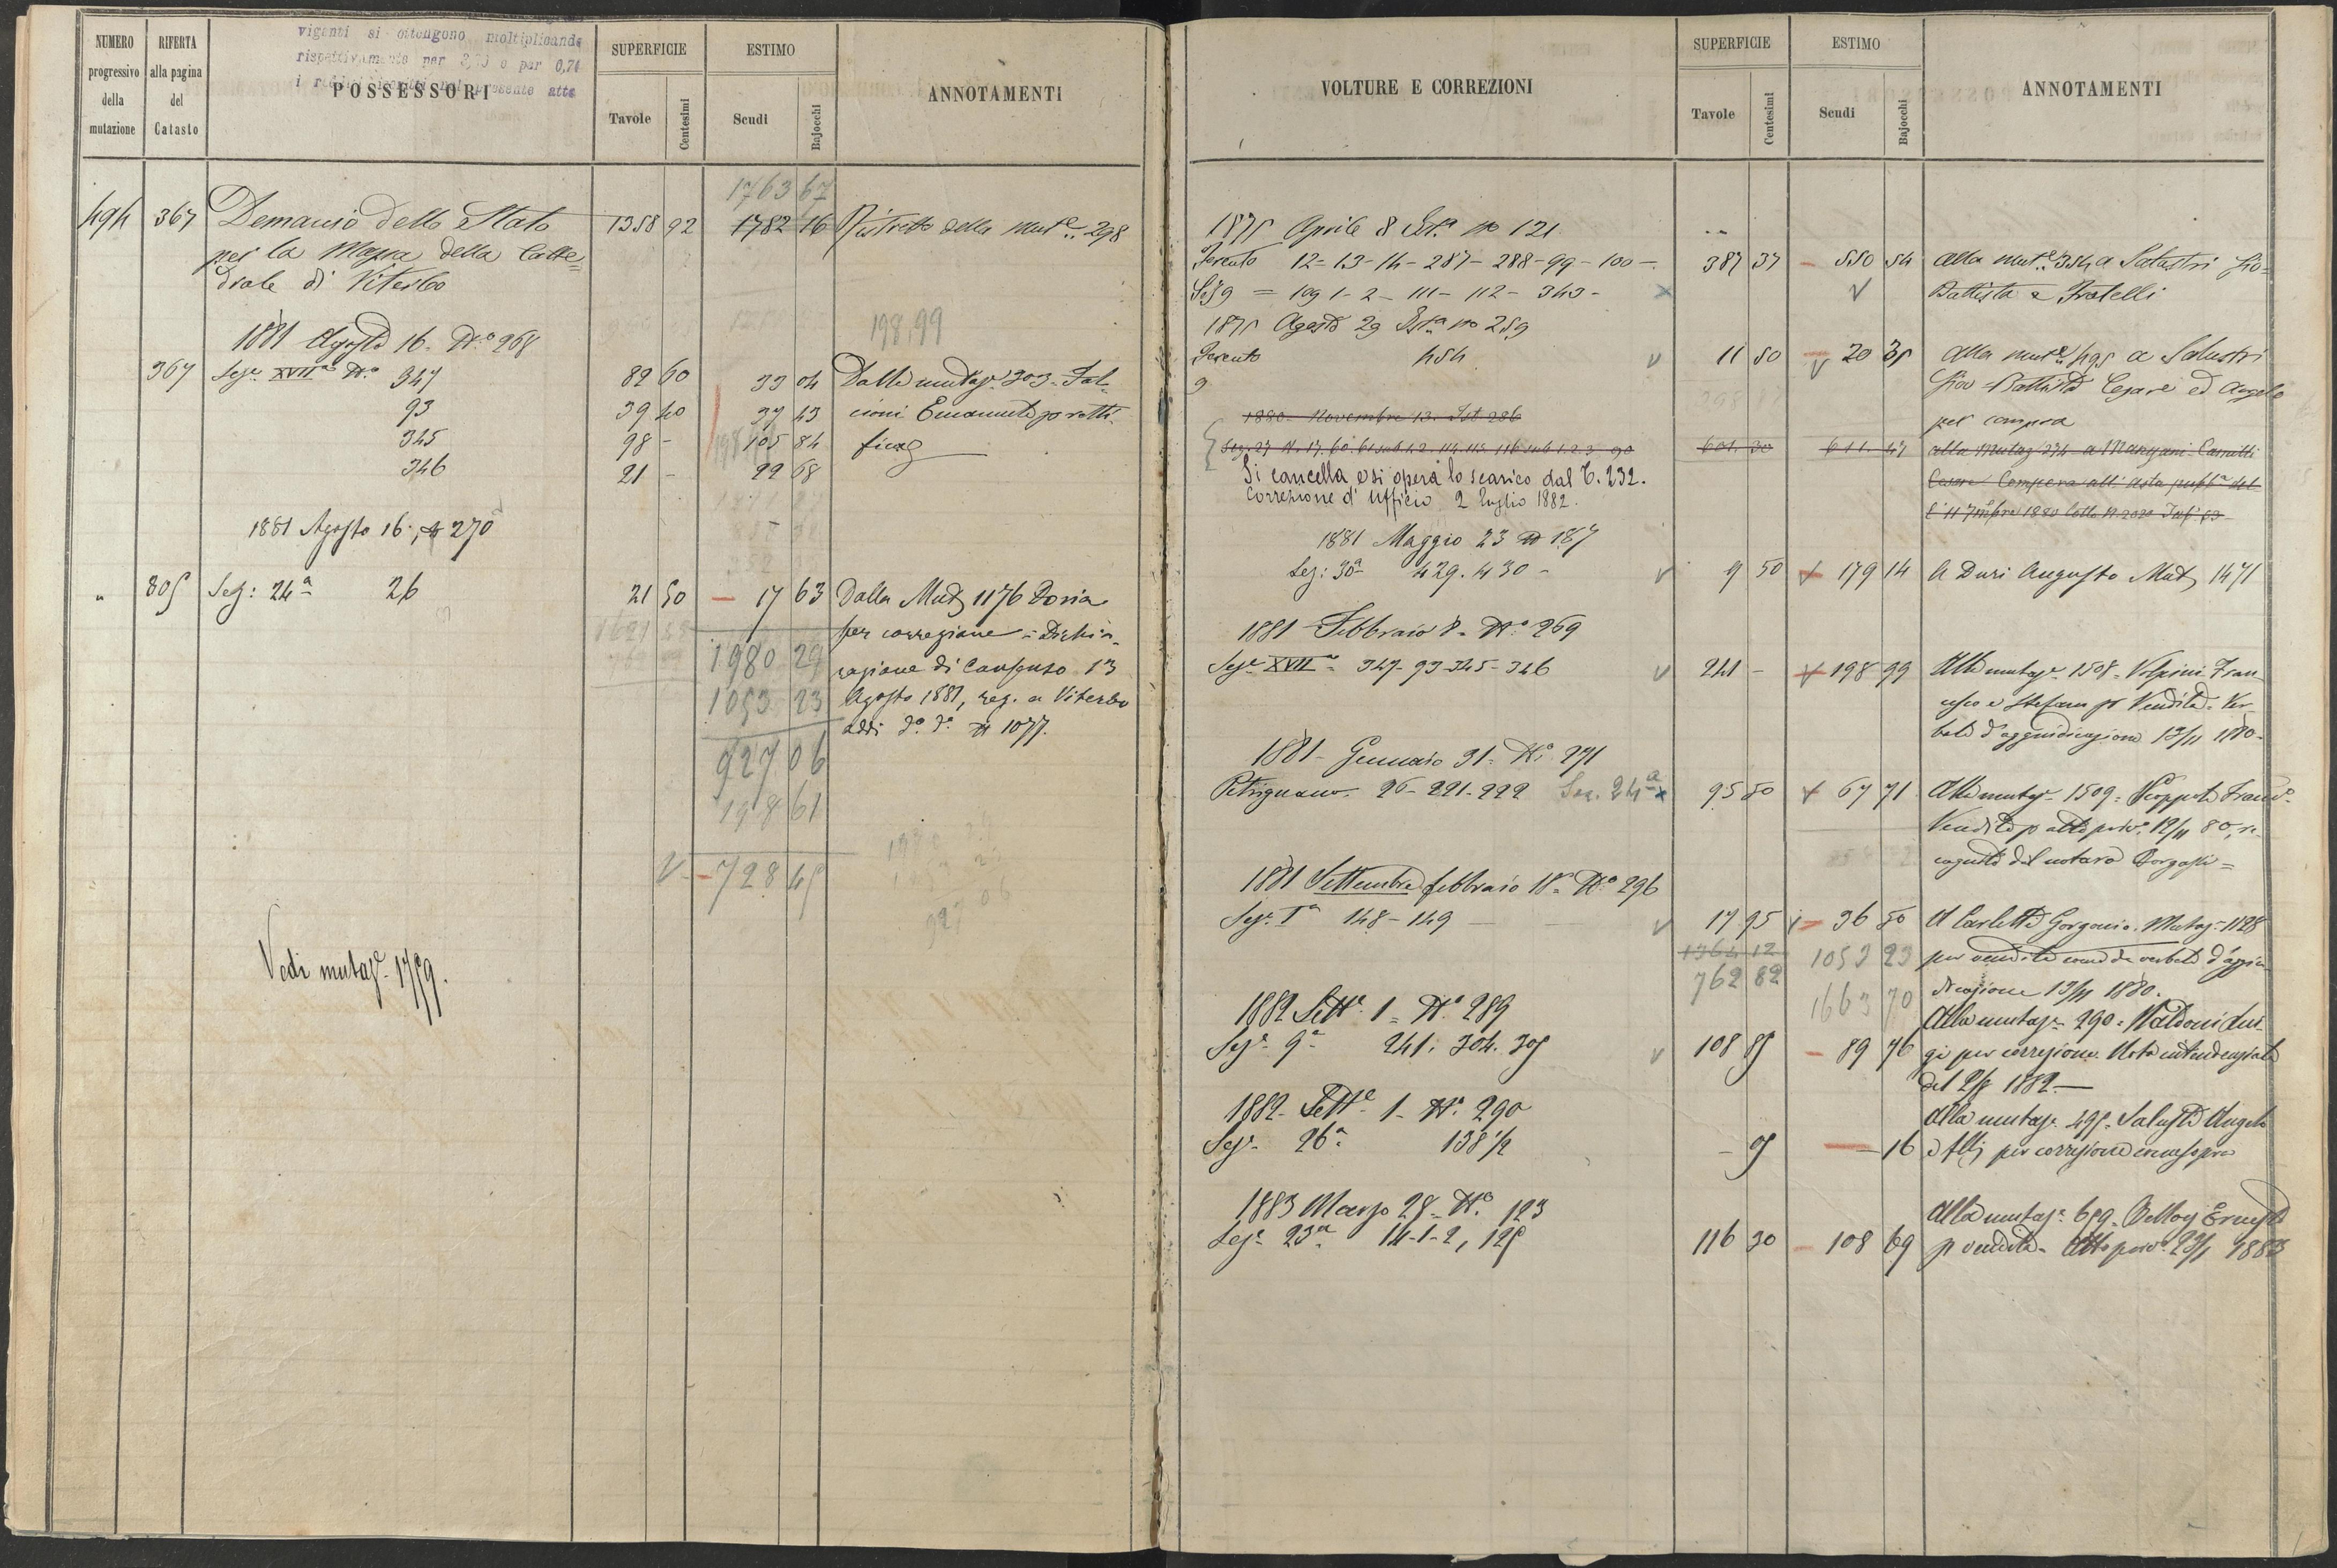 NUMERO progressivo della mutazione
RIFERTA alla pagina del Catasto
viganti si ottengono moltiplicando
rispettivamente per o per 0,74
i presente atto
POSSESSORI
SUPERFICIE
Tavole Centesimi
ESTIMO
Scudi Bajocchi
ANNOTAMENTI
1763 67
494 367 Demanio dello Stato 1358 92 1782 16 Ristretto della Mut.e 298
per la Mensa della Catte=
drale di Viterbo
1881 Agosto 16. N.o 268 198,99
367 Sez.e XVII.a N.o 347 82 60 33 04 Dalla mutaz.e 303 Fal-
93 39 40 37 43 cioni Emanuele p retti-
345 98 - 105 84 fica
346 21 - 22 68
1881 Agosto 16. N 270
" 805 Sez: 24a 26 21 50 17 63 Dalla Mutz 1176 Doria
per correzione = Dichia-
1980 29 razione di Consenso 13
1053 23 Agosto 1881, reg. a Viterbo
addi do do N 1077.
927 06
198 61
V 728 45
1980 29
1053 23
927 06
Vedi mutaz.e 1759.
VOLTURE E CORREZIONI
SUPERFICIE
Tavole Centesimi
ESTIMO
Scudi Bajocchi
ANNOTAMENTI
1875 Aprile 8 Ist.a no 121
Ferento 12=13-14-287-288-99-100- 387 37 550 54 alla mut.e 354 a Salustri Gio=
Sez 9 = 109 1-2-111-112-343- Battista e Fratelli
1875 Agosto 29 Ist.a no 259
Ferento 454 11 50 20 35 alla mut.e 495 a Salustri
9 Gio=Battista Cesare ed Angelo
per compra
1880 Novembre 13. Ist 286
Sez. 27 N. 17. 60. 61 sub 1.2. 114. 115. 116 sub 1.2.3. 90 601. 30 611. 47 alla Mutaz 274 a Mangani
Si cancella e si opera lo scarico dal T. 232. Cesare Compera all'Asta pubb.a del
Correzione d'Ufficio 2 Luglio 1882. 1880 Lotto N. 2020
1881 Maggio 23 N 187
Sez: 30a 429. 430 - 9 50 179 14 A Duri Augusto Mutz 1471
1881 Febbraio 8. N.o 269
Sez.e XVII.a 347-93-345-346 241 - 198 99 Alla mutaz.e 1508. Volpini Fran
cesco e Stefano pr Vendita. Ver
bale d'aggiudicazione 13/11 1880.
1881 - Gennaio 31. N.o 271
Petrignano. 26-221-222 Sez. 24a 95 50 67 71 Alla mutaz.e 1509. Franc.o
Vendita p atto priv.o 12/11 80, re
cognito del notaro
1881 Settembre febbraio 18. N.o 296
Sez.e I.a 148-149 17 95 36 50 A Carletti Gorgonio. Mutaz. 1128
1364 12 1053 23 per vendita come da verbale d'aggiu
762 82 1663 70 dicazione 13/11 1880.
1882 Sett.e 1. N.o 289 Alla mutaz.e 290. Lui-
Sez.e 9.a 241. 304. 305 108 85 89 76 gi per correzione. Nota intendenziale
del 2/8 1882.
1882 - Sett.e 1. N.o 290 Alla mutaz.e 495. Salustri Angelo
Sez.e 26.a 138 1/2 - 05 - 16 e f.lli per correzione come sopra
1883 Marzo 28. N.o 123 Alla mutaz.e 659. Ernesto
Sez.e 23.a 14-1-2, 125 116 30 108 69 p vendita. Atto priv.o 23/1 1883